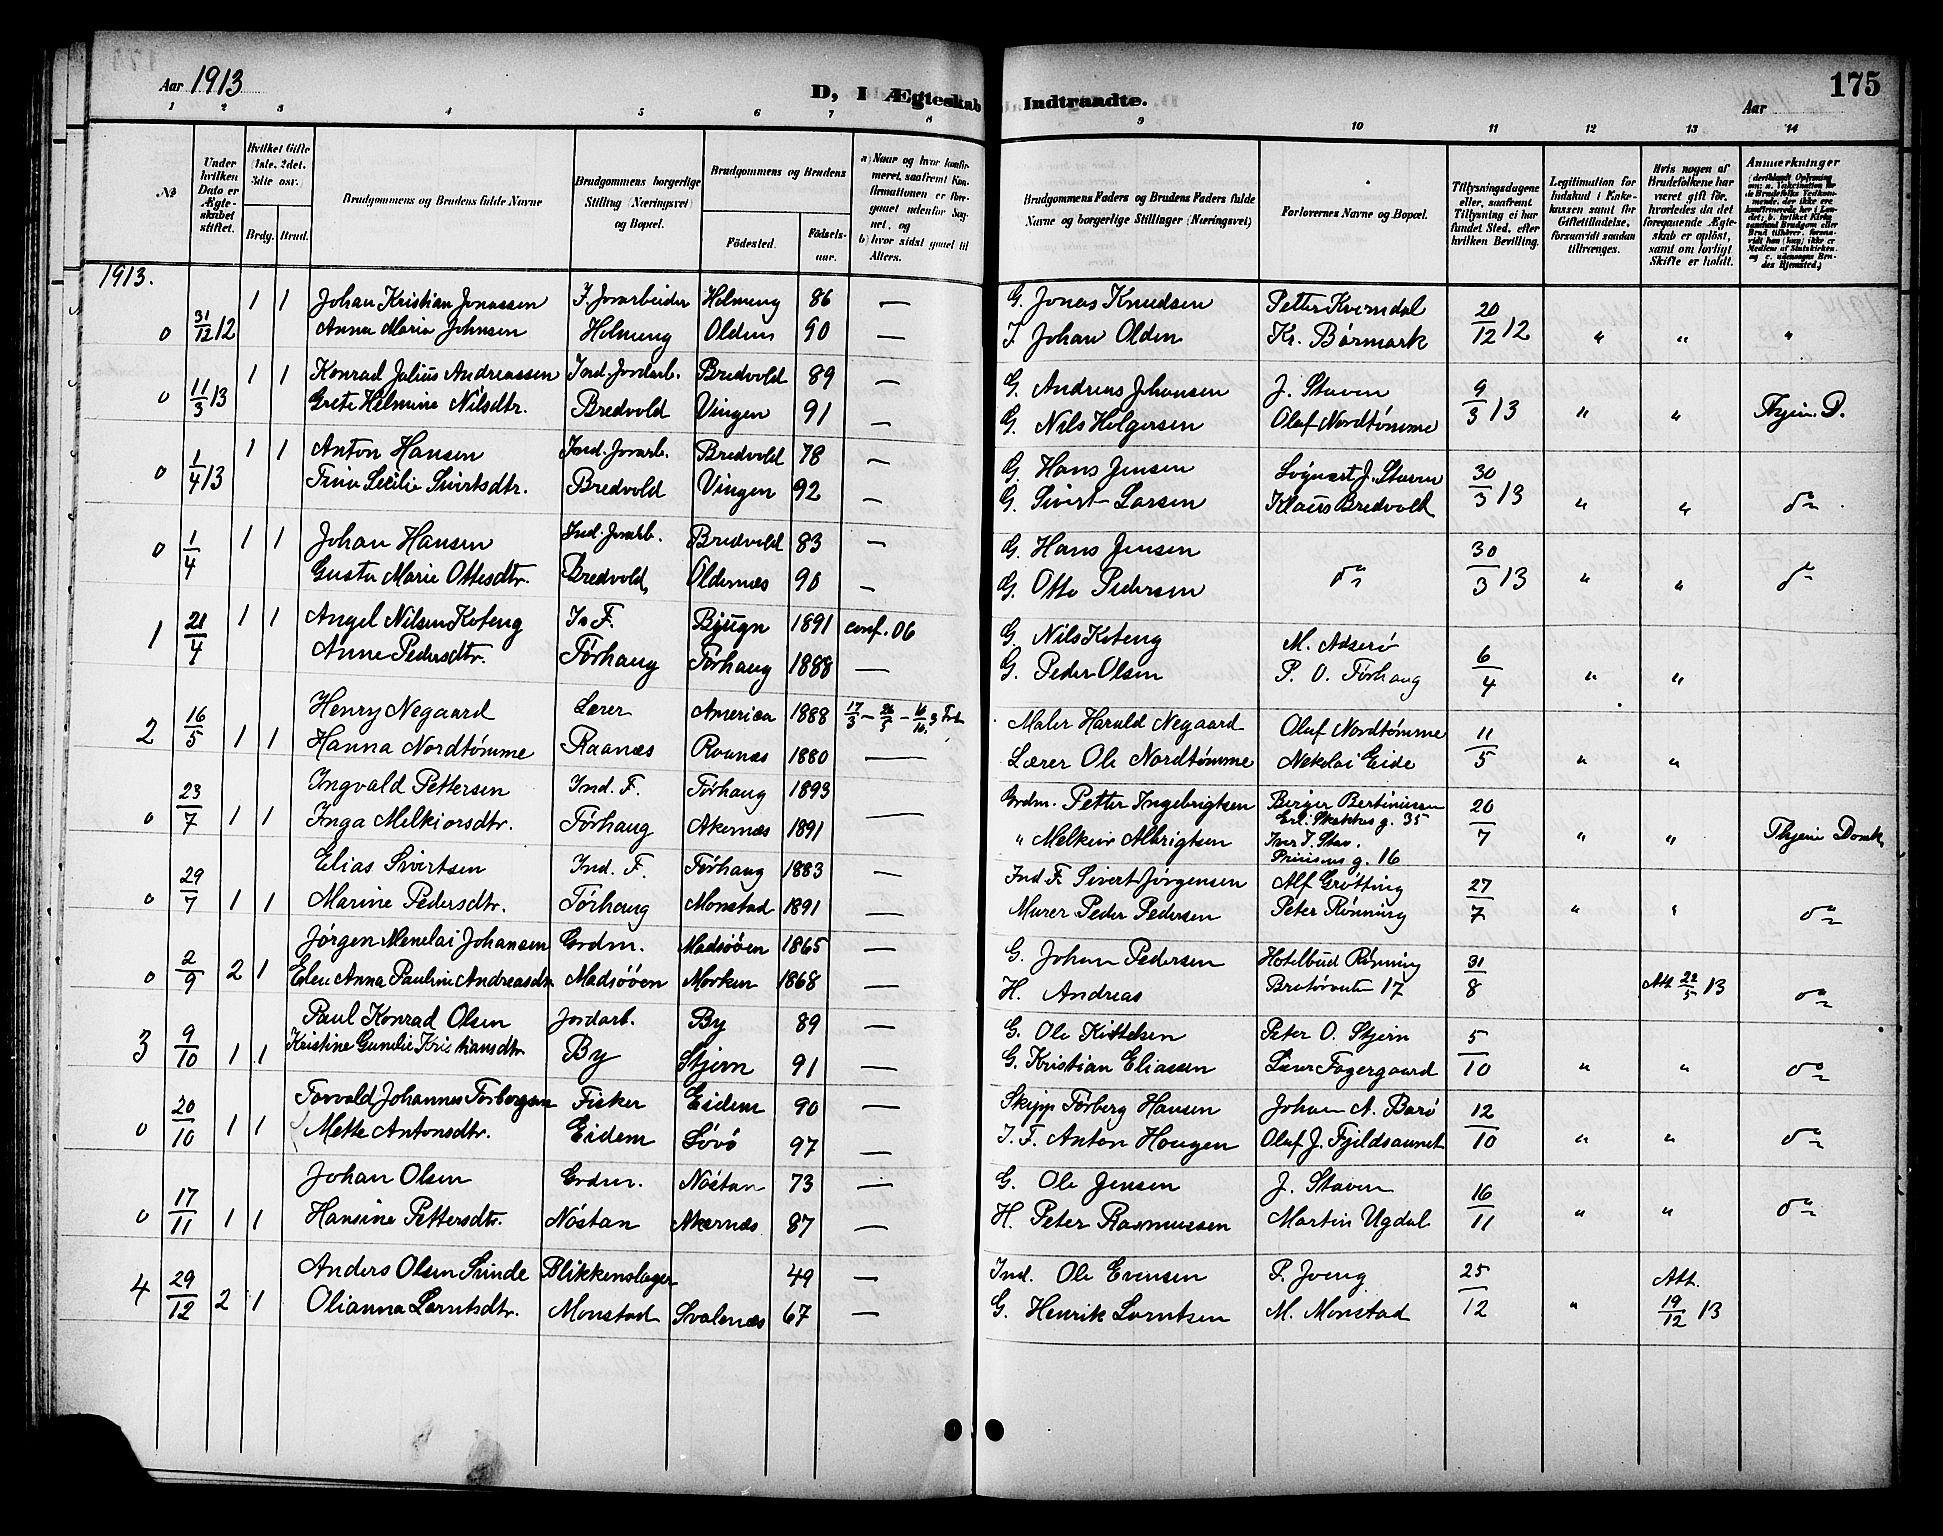 Aar 1913
D, I Ægteskab Indtraadte.
Aar
175
1 2 3 4 5 6 7 8 9 10 11 12 13 14
№
Under hvilken Dato er Ægteskabet stiftet.
Hvilket Gifte (1ste, 2det, 3die osv.
Brdg. Brud.
Brudgommens og Brudens fulde Navne
Brudgommens borgerlige Stilling (Næringsvei) og Bopæl.
Brudgommens og Brudens
Födested. Födselsaar.
a) Naar og hvor konfirmeret, saafremt Konfirmationen er foregaaet udenfor Sognet, og
b) hvor sidst gaaet til Alters.
Brudgommens Faders og Brudens Faders fulde Navne og borgerlige Stillinger (Næringsvei)
Forlovernes Navne og Bopæl.
Tillysningsdagene eller, saafremt Tillysning ei har fundet Sted, efter hvilken Bevilling.
Legitimation for Indskud i Enkekassen samt for Giftetilladelse, forsaavidt saadan tiltrænges.
Hvis nogen af Brudefolkene har været gift för, hvorledes da det foregaaende Ægteskab er oplöst, samt om lovligt Skifte er holdt.
Anmærkninger
1913.
0 31/12 12 1 1 Johan Kristian Jonassen F. Jorarbeider Holmeng 86 — G. Jonas Knudsen Petter Kvemdal 20/12 12
Anna Maria Johnsen Holmeng Olden 90 — F. Johan Olden Kr. Børmark " " "
0 11/3 13 1 1 Konrad Julius Andreassen Ind. Jordarb. Bredvold 89 — G. Andreas Johansen J. Staven 9/3 13
Grete Helmine Nilsdtr. Bredvold Vingen 91 — G. Nils Holgersen Olaf Nordtømme " " Thjem. D.
0 1/4 13 1 1 Anton Hansen Ind. Jorarb. Bredvold 78 — G. Hans Jensen J. Staven 30/3 13
Trine Secilie Sivertsdtr. Bredvold Vingen 92 — G. Sivert Larsen Klaus Bredvold " " do
0 1/4 1 1 Johan Hansen Ind. Jorarb. Bredvold 83 — G. Hans Jensen do 30/3 13
Gusta Marie Ottesdtr. Bredvold Oldernæs 90 — G. Otto Pedersen " " do
1 21/4 1 1 Angel Nilsen Koteng In F. Bjugn 1891 conf. 06 G. Nils Koteng M. Adserø 6/4
Anne Pedersdtr. Tørhaug Tørhaug 1888 — G. Peder Olsen P. O. Tørhaug " "
2 16/5 1 1 Henry Negaard Lærer America 1888 Maler Harald Negaard Olaf Nordtømme 11/5
Hanna Nordtømme Raanæs Raanæs 1880 — Lærer Ole Nordtømme Nekolai Eide " "
0 23/7 1 1 Ingvald Pettersen Ind. F. Tørhaug 1893 Grdm. Petter Ingebrigtsen Berger Bertinussen 20/7
Erl. Skakkes g. 35
Inga Melkiorsdtr. Tørhaug Akernæs 1891 — " Melkior Albrigtsen Iver J. Stav. " " Thjem Domk
Prinsens g. 16
0 29/7 1 1 Elias Sivertsen Ind. F. Tørhaug 1883 — Ind F. Sivert Jørgensen Alf Grøtting 27/7
Marine Pedersdtr. Tørhaug Monstad 1891 — Murer Peder Pedersen Peter Rønning " " do
0 2/9 2 1 Jørgen Menelai Johansen Grdm. Madsøen 1865 — G. Johan Pedersen Hotelbud Rønning 31/8
Elen Anna Pauline Andreasdtr Madsøen Morken 1868 — H. Andreas 17 Att. 22/5 13 do
3 9/10 1 1 Paul Konrad Olsen Jordarb. By 89 — G. Ole Kittelsen Peter O. Stjern 5/10
Kristine Gunelie Kristiansdtr By Stjern 91 — G. Kristian Eliassen Lærer Fagergaard " " do
0 20/10 1 1 Torvald Johannes Torbergsen Fisker Eidem 90 — Skipp Torberg Hansen Johan A. Barø 12/10
Mette Antonsdtr. Eidem Løvø 97 — I. F. Anton Haugen Olaf J. Fjeldsaunet " " do
0 17/11 1 1 Johan Olsen Grdm. Nöstan 73 — G. Ole Jensen J. Staven 16/11
Hansine Pettersdtr. Nöstan Akernæs 87 — H. Peter Rasmussen Martin Ugdal " " do
4 29/12 2 1 Anders Olsen Sunde Blikkenslager 49 — Ind. Ole Evensen P. Joeng 25/12 Att.
Olianna Larntsdtr. Monstad Svalenæs 67 — G. Henrik Larntsen M. Monstad " 19/12 13